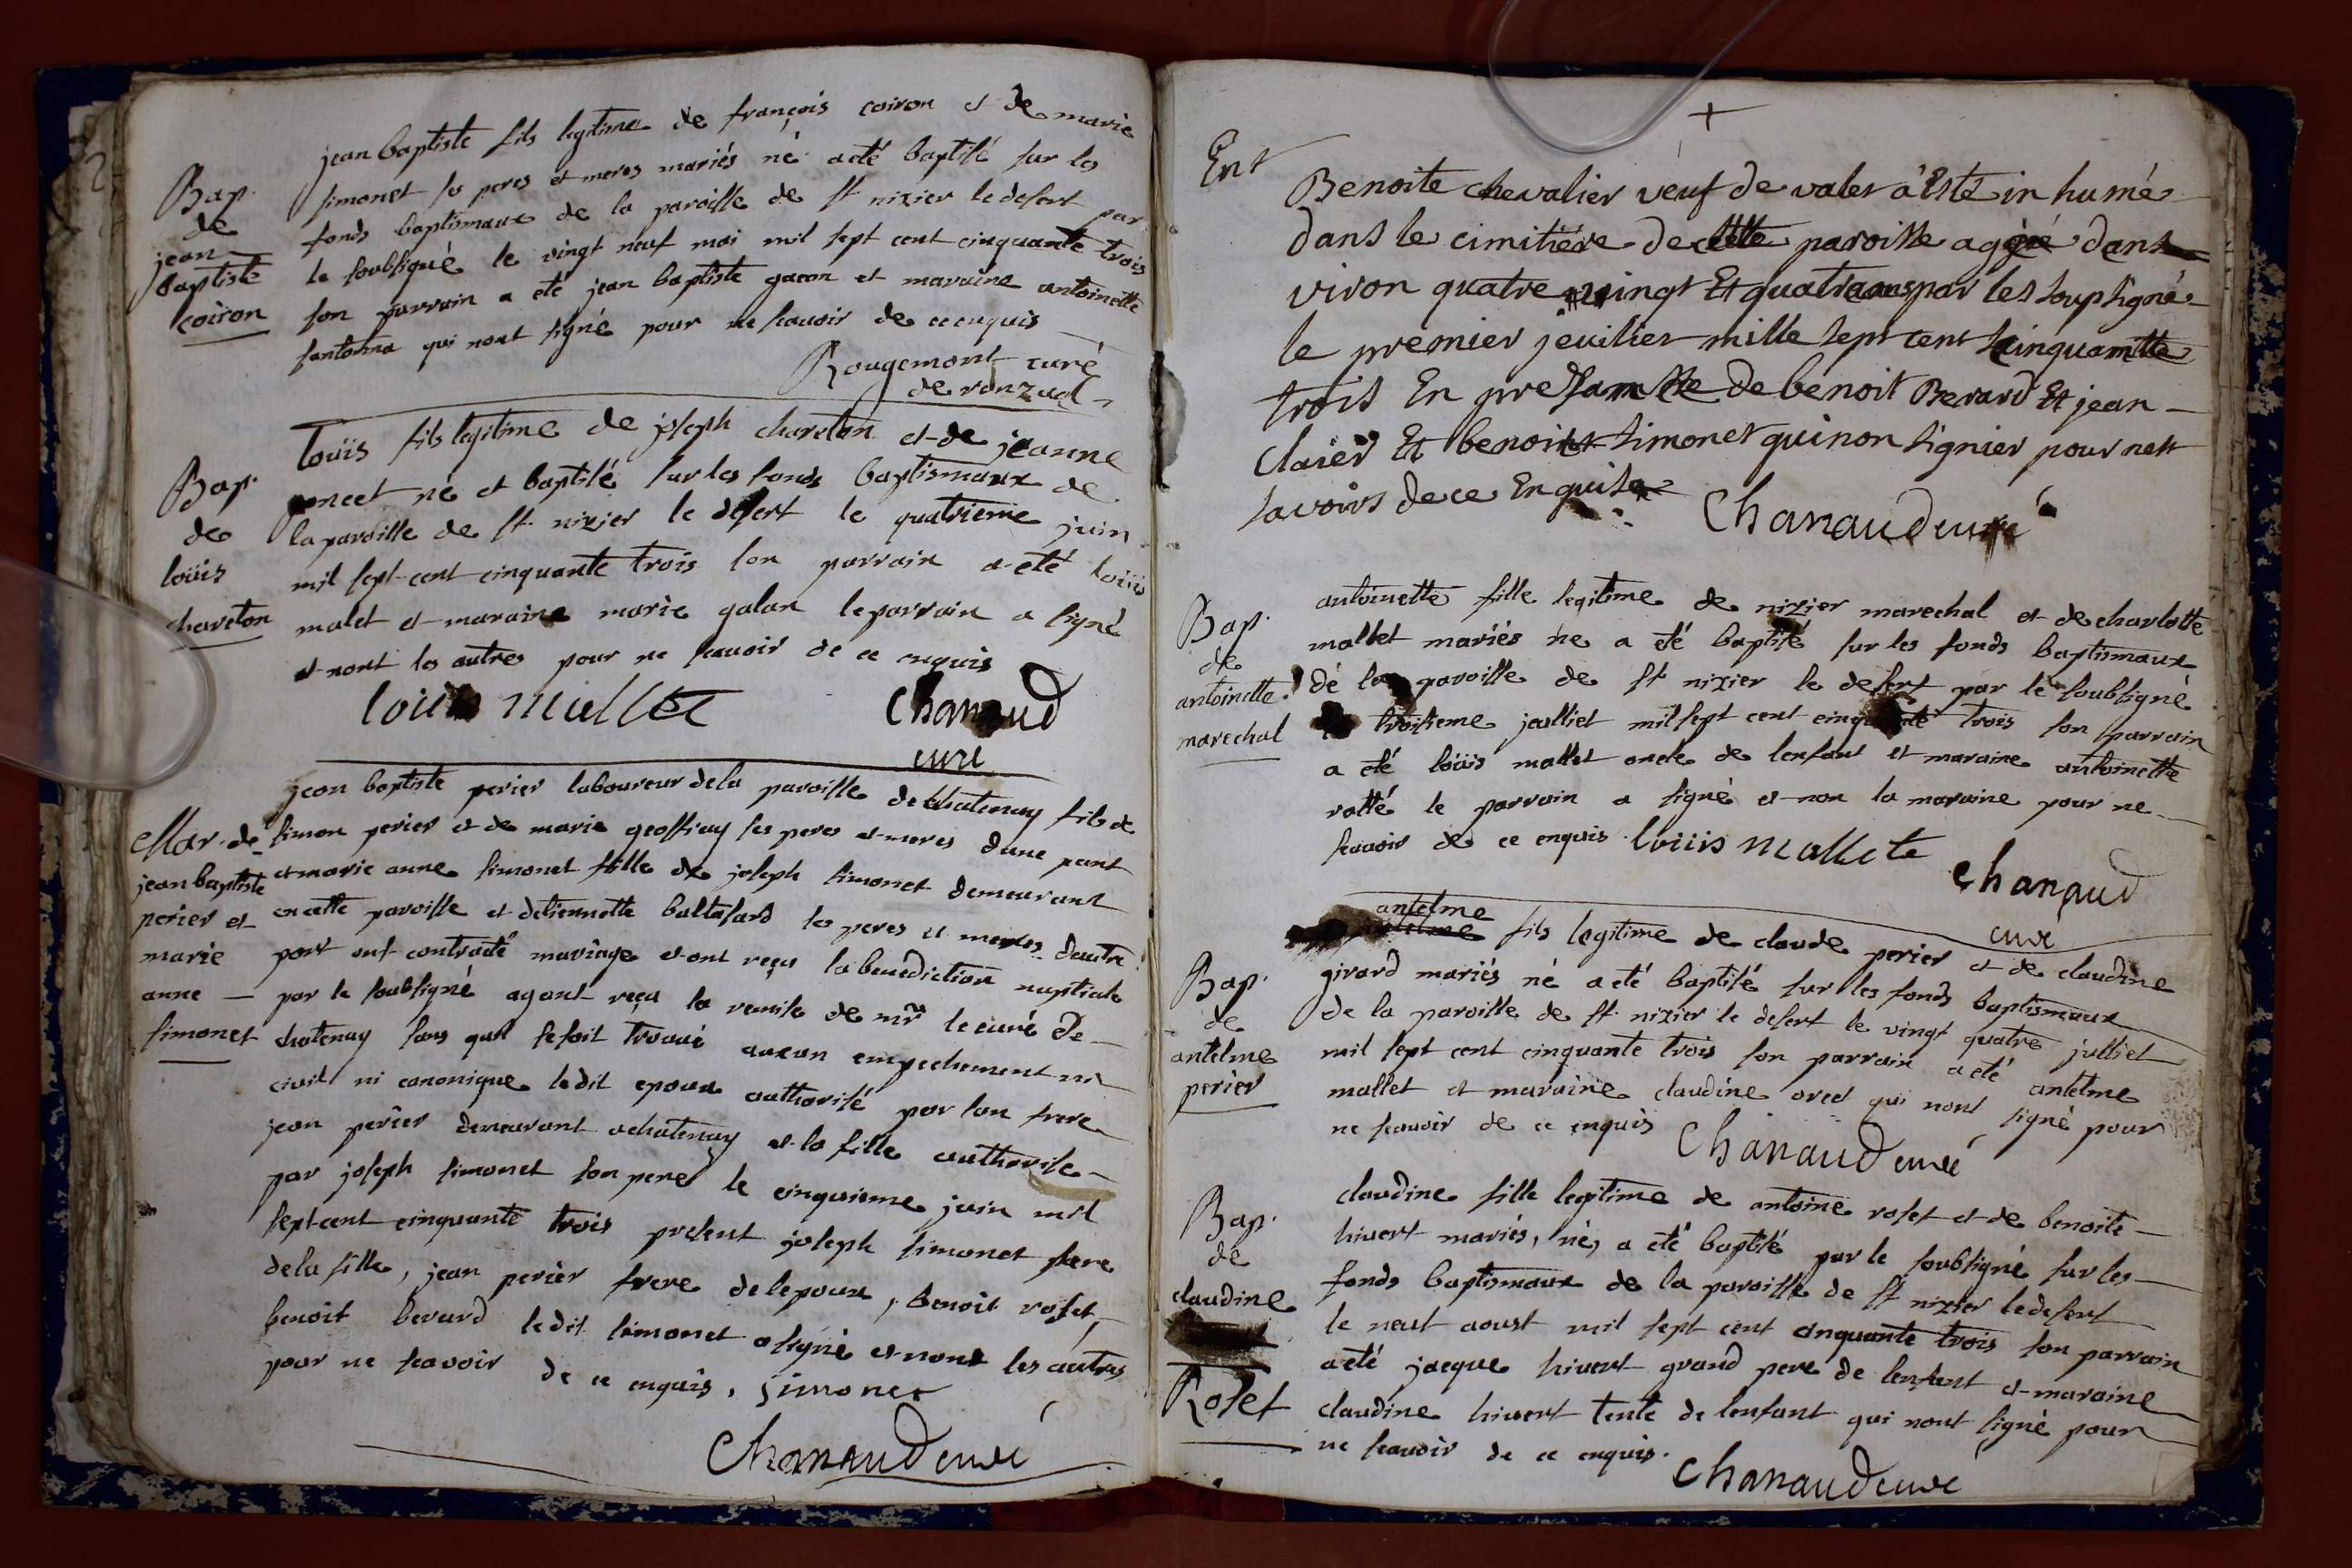 Bap.
de
jean
baptiste
coiron
jean baptiste fils legitime de françois coiron et de marie
simonet ses peres et meres mariés né a eté baptisé sur les
fonds baptismaux de la paroisse de st nizier le desert par
le soubsigné le vingt neuf mai mil sept cent cinquante trois
son parrain a eté jean baptiste gacon et maraine antoinette
qui nont signé pour ne scauoir de ce enquis
Rougemont curé
de ronzuel
Bap.
de
loüis
chareton
Loüis fils legitime de joseph chareton et de jeanne
poncet né et baptisé sur les fonds baptismaux de
la paroisse de st nizier le desert le quatrieme juin
mil sept cent cinquante trois son parrain a eté loüis
malet et maraine marie galan le parrain a signé
et nont les autres pour ne scauoir de ce enquis
louis mallet chanaud
curé
Mar. de
jean baptiste
perier et
marie
anne
simonet
jean baptiste perier laboureur de la paroisse de chatenay fils de
simon perier et de marie geoffray ses peres et meres dune part
et marie anne simonet fille de joseph simonet demeurant
en cette paroisse et detiennette baltasard ses peres et meres dautre
part ont contracté mariage et ont reçu la benediction nuptiale
par le soubsigné ayant reçu la remise de mr le curé de
chatenay sans quil se soit trouué aucun empechement ni
civil ni canonique ledit epoux authorisé par son frere
jean perier demeurant a chatenay et la fille authorisee
par joseph simonet son pere le cinquieme juin mil
sept cent cinquante trois present joseph simonet pere
de la fille, jean perier frere de lepoux, benoit roset,
benoit berard ledit simonet a signé et nont les autres
pour ne scavoir de ce enquis. Simonet
Chanaud curé
Ent
Benoite chevalier veuf de valer a Esté in humé
dans le cimitiére de cette paroisse agéé dans
viron quatre vingt Et quatre ans par les soupsigné
le premier jeuilier mille sept cent sinquantte
trois En presamsse de benoit Berard Et jean
claier Et benoist simonet qui non signier pour nest
savoirs de ce Enquise
Chanaud curé
Bap.
de
antoinette
marechal
antoinette fille legitime de nizier marechal et de charlotte
mallet mariés ne a eté baptisé sur les fonds baptismaux
de la paroisse de st nizier le desert par le soubsigné
le troisieme juilliet mil sept cent cinquante trois son parrain
a eté loüis mallet oncle de lenfant et maraine antoinette
ratté le parrain a signé et non la maraine pour ne
scauoir de ce enquis loüis mallete
chanaud
curé
Bap.
de
antelme
perier
antelme
fils legitime de claude perier et de claudine
girard mariés né a eté baptisé sur les fonds baptismaux
de la paroisse de st nizier le desert le vingt quatre julliet
mil sept cent cinquante trois son parrain a eté antelme
mallet et maraine claudine orcel qui nont signé pour
ne scauoir de ce enquis Chanaud curé
Bap.
de
claudine
Roset
claudine fille legitime de antoine roset et de benoite
hivert mariés, né, a eté baptisé par le soubsigné sur les
fonds baptismaux de la paroisse de st nizier le desert
le neuf aoust mil sept cent cinquante trois son parrain
a eté jacque hivert grand pere de lenfant et maraine
claudine hivert tente de lenfant qui nont signé pour
ne scauoir de ce enquis.
Chanaud curé